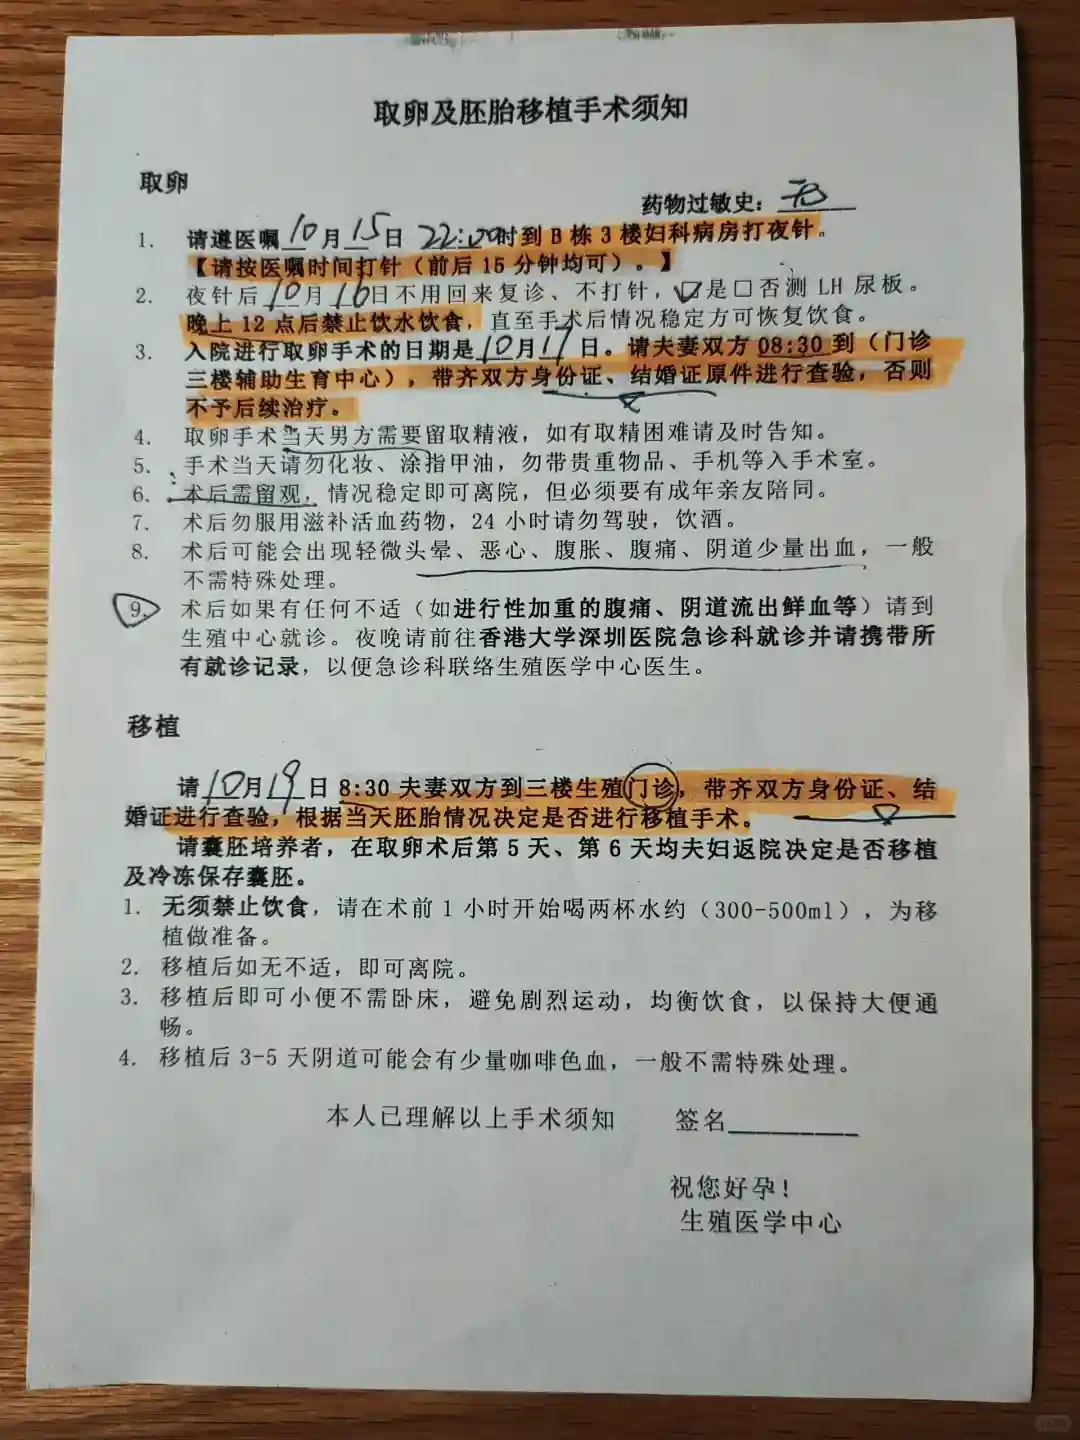 取卵及胚胎移植手术须知
取卵
药物过敏史：无
1. 请遵医嘱10月15日22:00时到 B 栋 3 楼妇科病房打夜针。
【请按医嘱时间打针（前后 15 分钟均可）。】
2. 夜针后10月16日不用回来复诊、不打针，☑是□否测 LH 尿板。
晚上 12 点后禁止饮水饮食，直至手术后情况稳定方可恢复饮食。
3. 入院进行取卵手术的日期是10月17日。请夫妻双方 08:30 到（门诊
三楼辅助生育中心），带齐双方身份证、结婚证原件进行查验，否则
不予后续治疗。
4. 取卵手术当天男方需要留取精液，如有取精困难请及时告知。
5. 手术当天请勿化妆、涂指甲油，勿带贵重物品、手机等入手术室。
6. 术后需留观，情况稳定即可离院，但必须要有成年亲友陪同。
7. 术后勿服用滋补活血药物，24 小时请勿驾驶，饮酒。
8. 术后可能会出现轻微头晕、恶心、腹胀、腹痛、阴道少量出血，一般
不需特殊处理。
9. 术后如果有任何不适（如进行性加重的腹痛、阴道流出鲜血等）请到
生殖中心就诊。夜晚请前往香港大学深圳医院急诊科就诊并请携带所
有就诊记录，以便急诊科联络生殖医学中心医生。
移植
请10月19日 8:30 夫妻双方到三楼生殖门诊，带齐双方身份证、结
婚证进行查验，根据当天胚胎情况决定是否进行移植手术。
请囊胚培养者，在取卵术后第 5 天、第 6 天均夫妇返院决定是否移植
及冷冻保存囊胚。
1. 无须禁止饮食，请在术前 1 小时开始喝两杯水约（300-500ml），为移
植做准备。
2. 移植后如无不适，即可离院。
3. 移植后即可小便不需卧床，避免剧烈运动，均衡饮食，以保持大便通
畅。
4. 移植后 3-5 天阴道可能会有少量咖啡色血，一般不需特殊处理。
本人已理解以上手术须知 签名__________
祝您好孕！
生殖医学中心